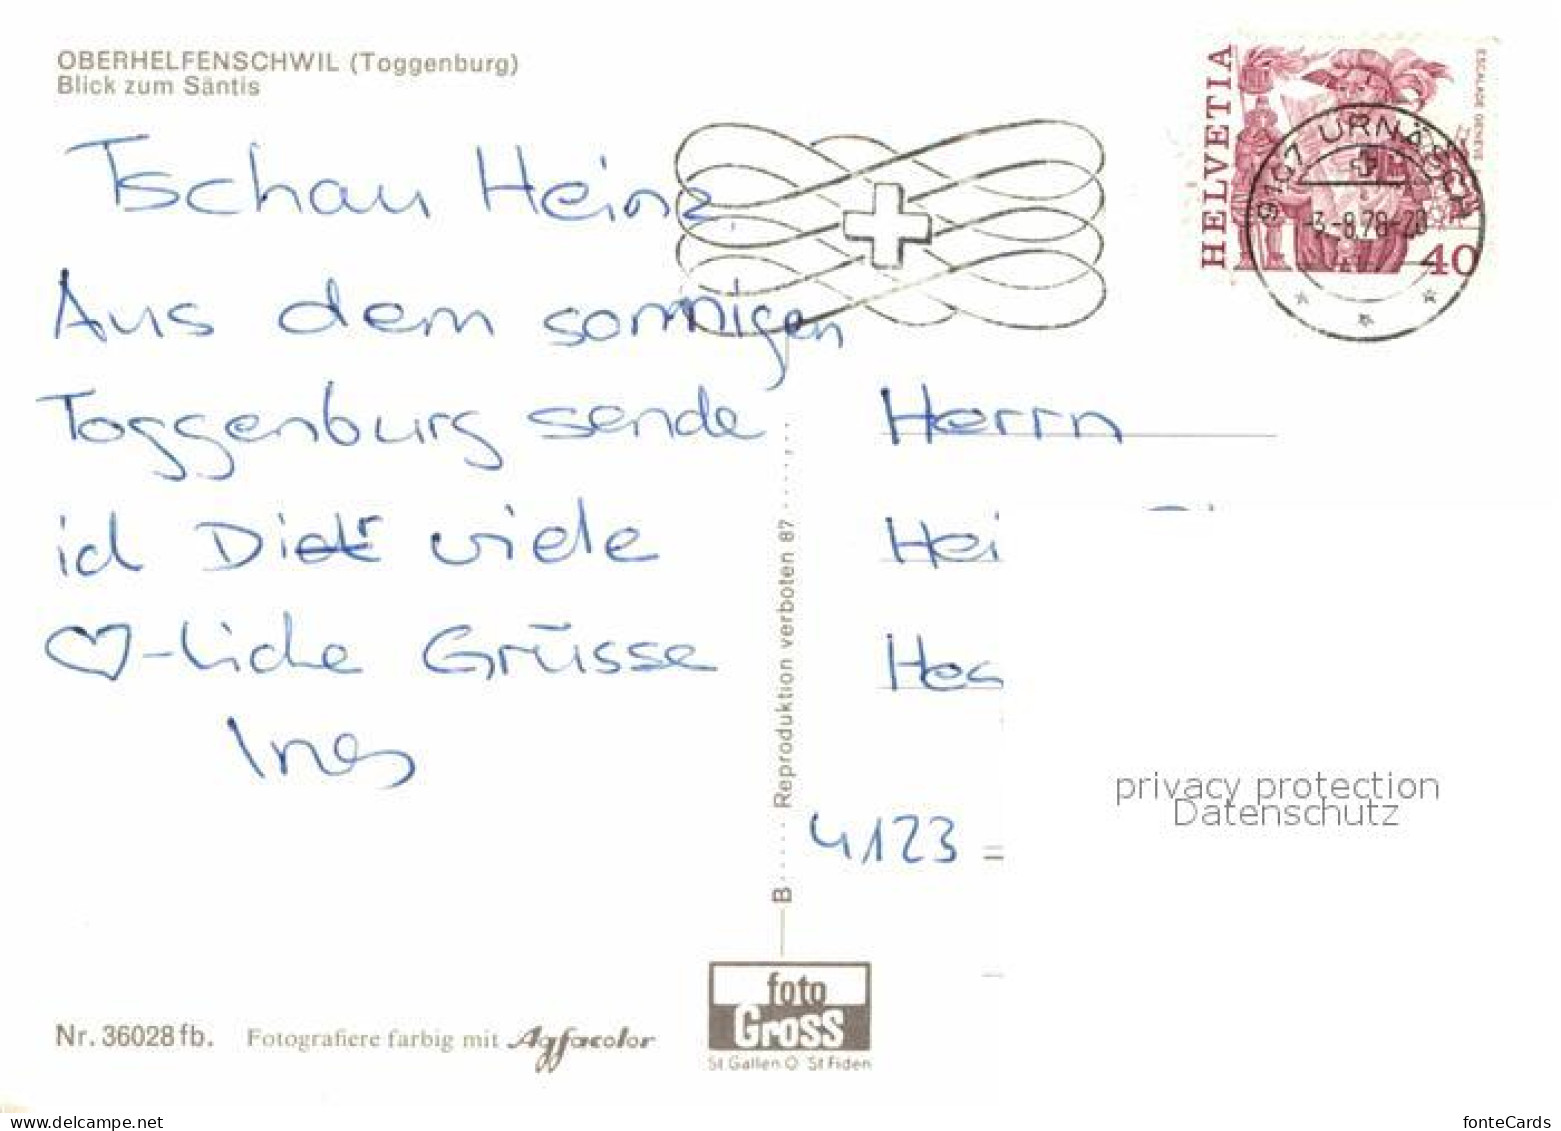 OBERHELFENSCHWIL (Toggenburg)
Blick zum Säntis
HELVETIA
ESCALADE GENÈVE
40
9107 URNÄSCH
-3.-8.78-20
Tschau Heinz,
Aus dem sonnigen
Toggenburg sende
ich Dir viele
♡-liche Grüsse
Ines
Herrn
Hei
4123
B ..... Reproduktion verboten 87 .....,...
privacy protection
Datenschutz
foto
Gross
St Gallen O St Fiden
Nr. 36028 fb. Fotografiere farbig mit Agfacolor
ak-ansichtskarten.net
fonteCards